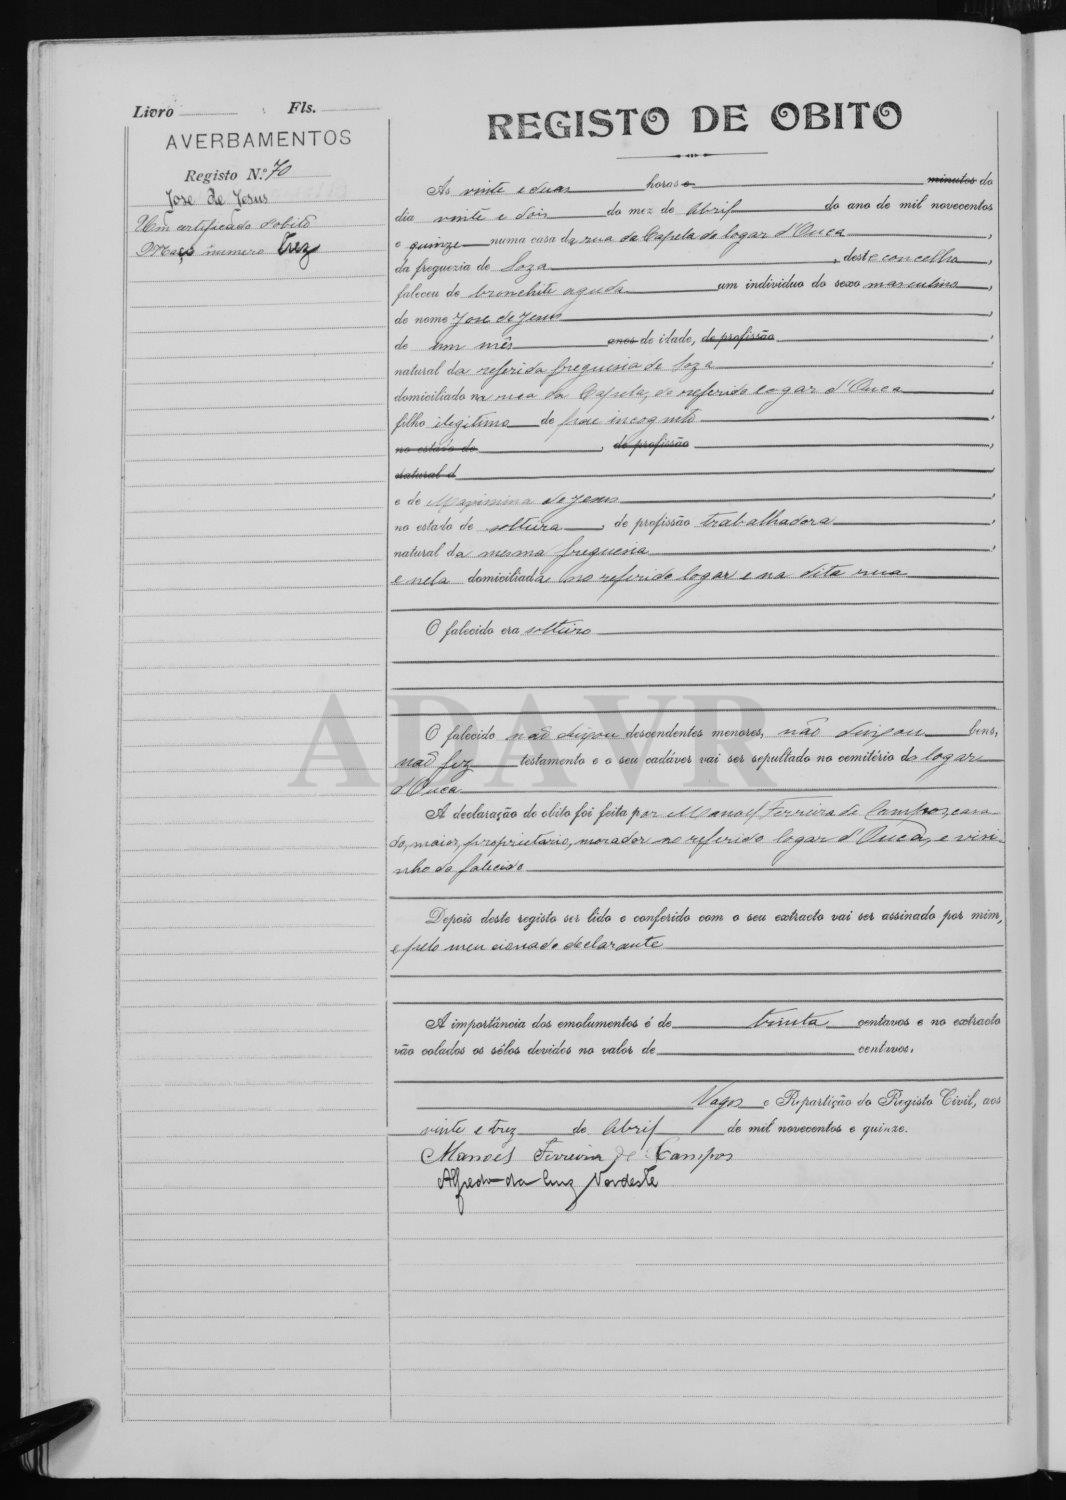 Livro Fls.
AVERBAMENTOS
Registo N.º 70
José de Jesus
Um certificado d'obito
Maço numero trez
REGISTO DE OBITO
Ás vinte e duas horas e minutos do
dia vinte e dois do mez de Abril do ano de mil novecentos
e quinze numa casa da rua da Capela do logar d'Ouca,
da freguezia de Soza, deste concelho,
faleceu de bronchite aguda um individuo do sexo masculino,
de nome José de Jesus,
de um mês anos de idade, de profissão,
natural da referida freguesia de Soza,
domiciliado na rua da Capela, do referido logar d'Ouca,
filho ilegitimo de pae incognito,
no estado de, de profissão,
natural d,
e de Maximina de Jesus,
no estado de solteira, de profissão trabalhadora,
natural da mesma freguesia,
e nela domiciliada no referido logar e na dita rua
O falecido era solteiro
ADAVR
O falecido não deixou descendentes menores, não deixou bens,
não fez testamento e o seu cadáver vai ser sepultado no cemitério do logar
d'Ouca
A declaração do obito foi feita por Manoel Ferreira de Campos, casa-
do, maior, proprietario, morador no referido logar d'Ouca, e visi-
nho do falecido
Depois deste registo ser lido e conferido com o seu extracto vai ser assinado por mim,
e pelo mencionado declarante
A importância dos emolumentos é de trinta centavos e no extracto
vão colados os sêlos devidos no valor de centavos.
Vagos e Repartição do Registo Civil, aos
vinte e trez de Abril de mil novecentos e quinze.
Manoel Ferreira de Campos
Alfredo da Cruz Nordeste